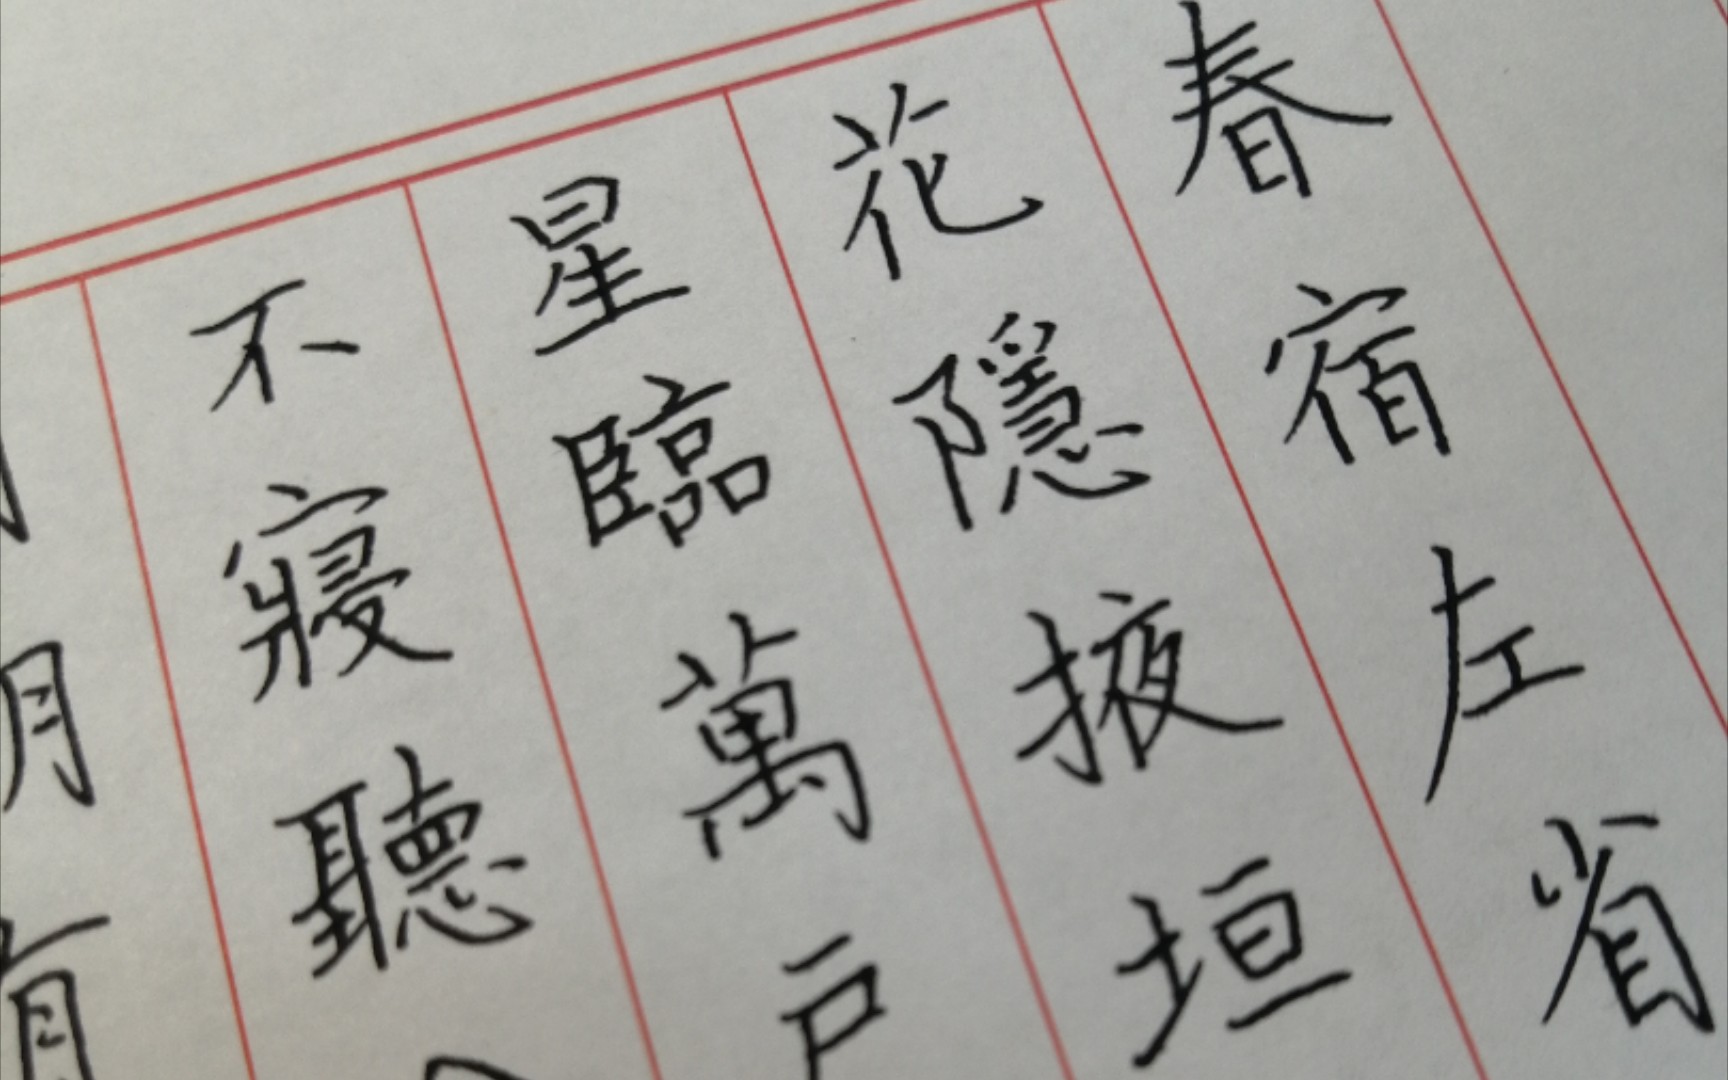 春宿左省
花隱掖垣
星臨萬戶
不寢聽
明有